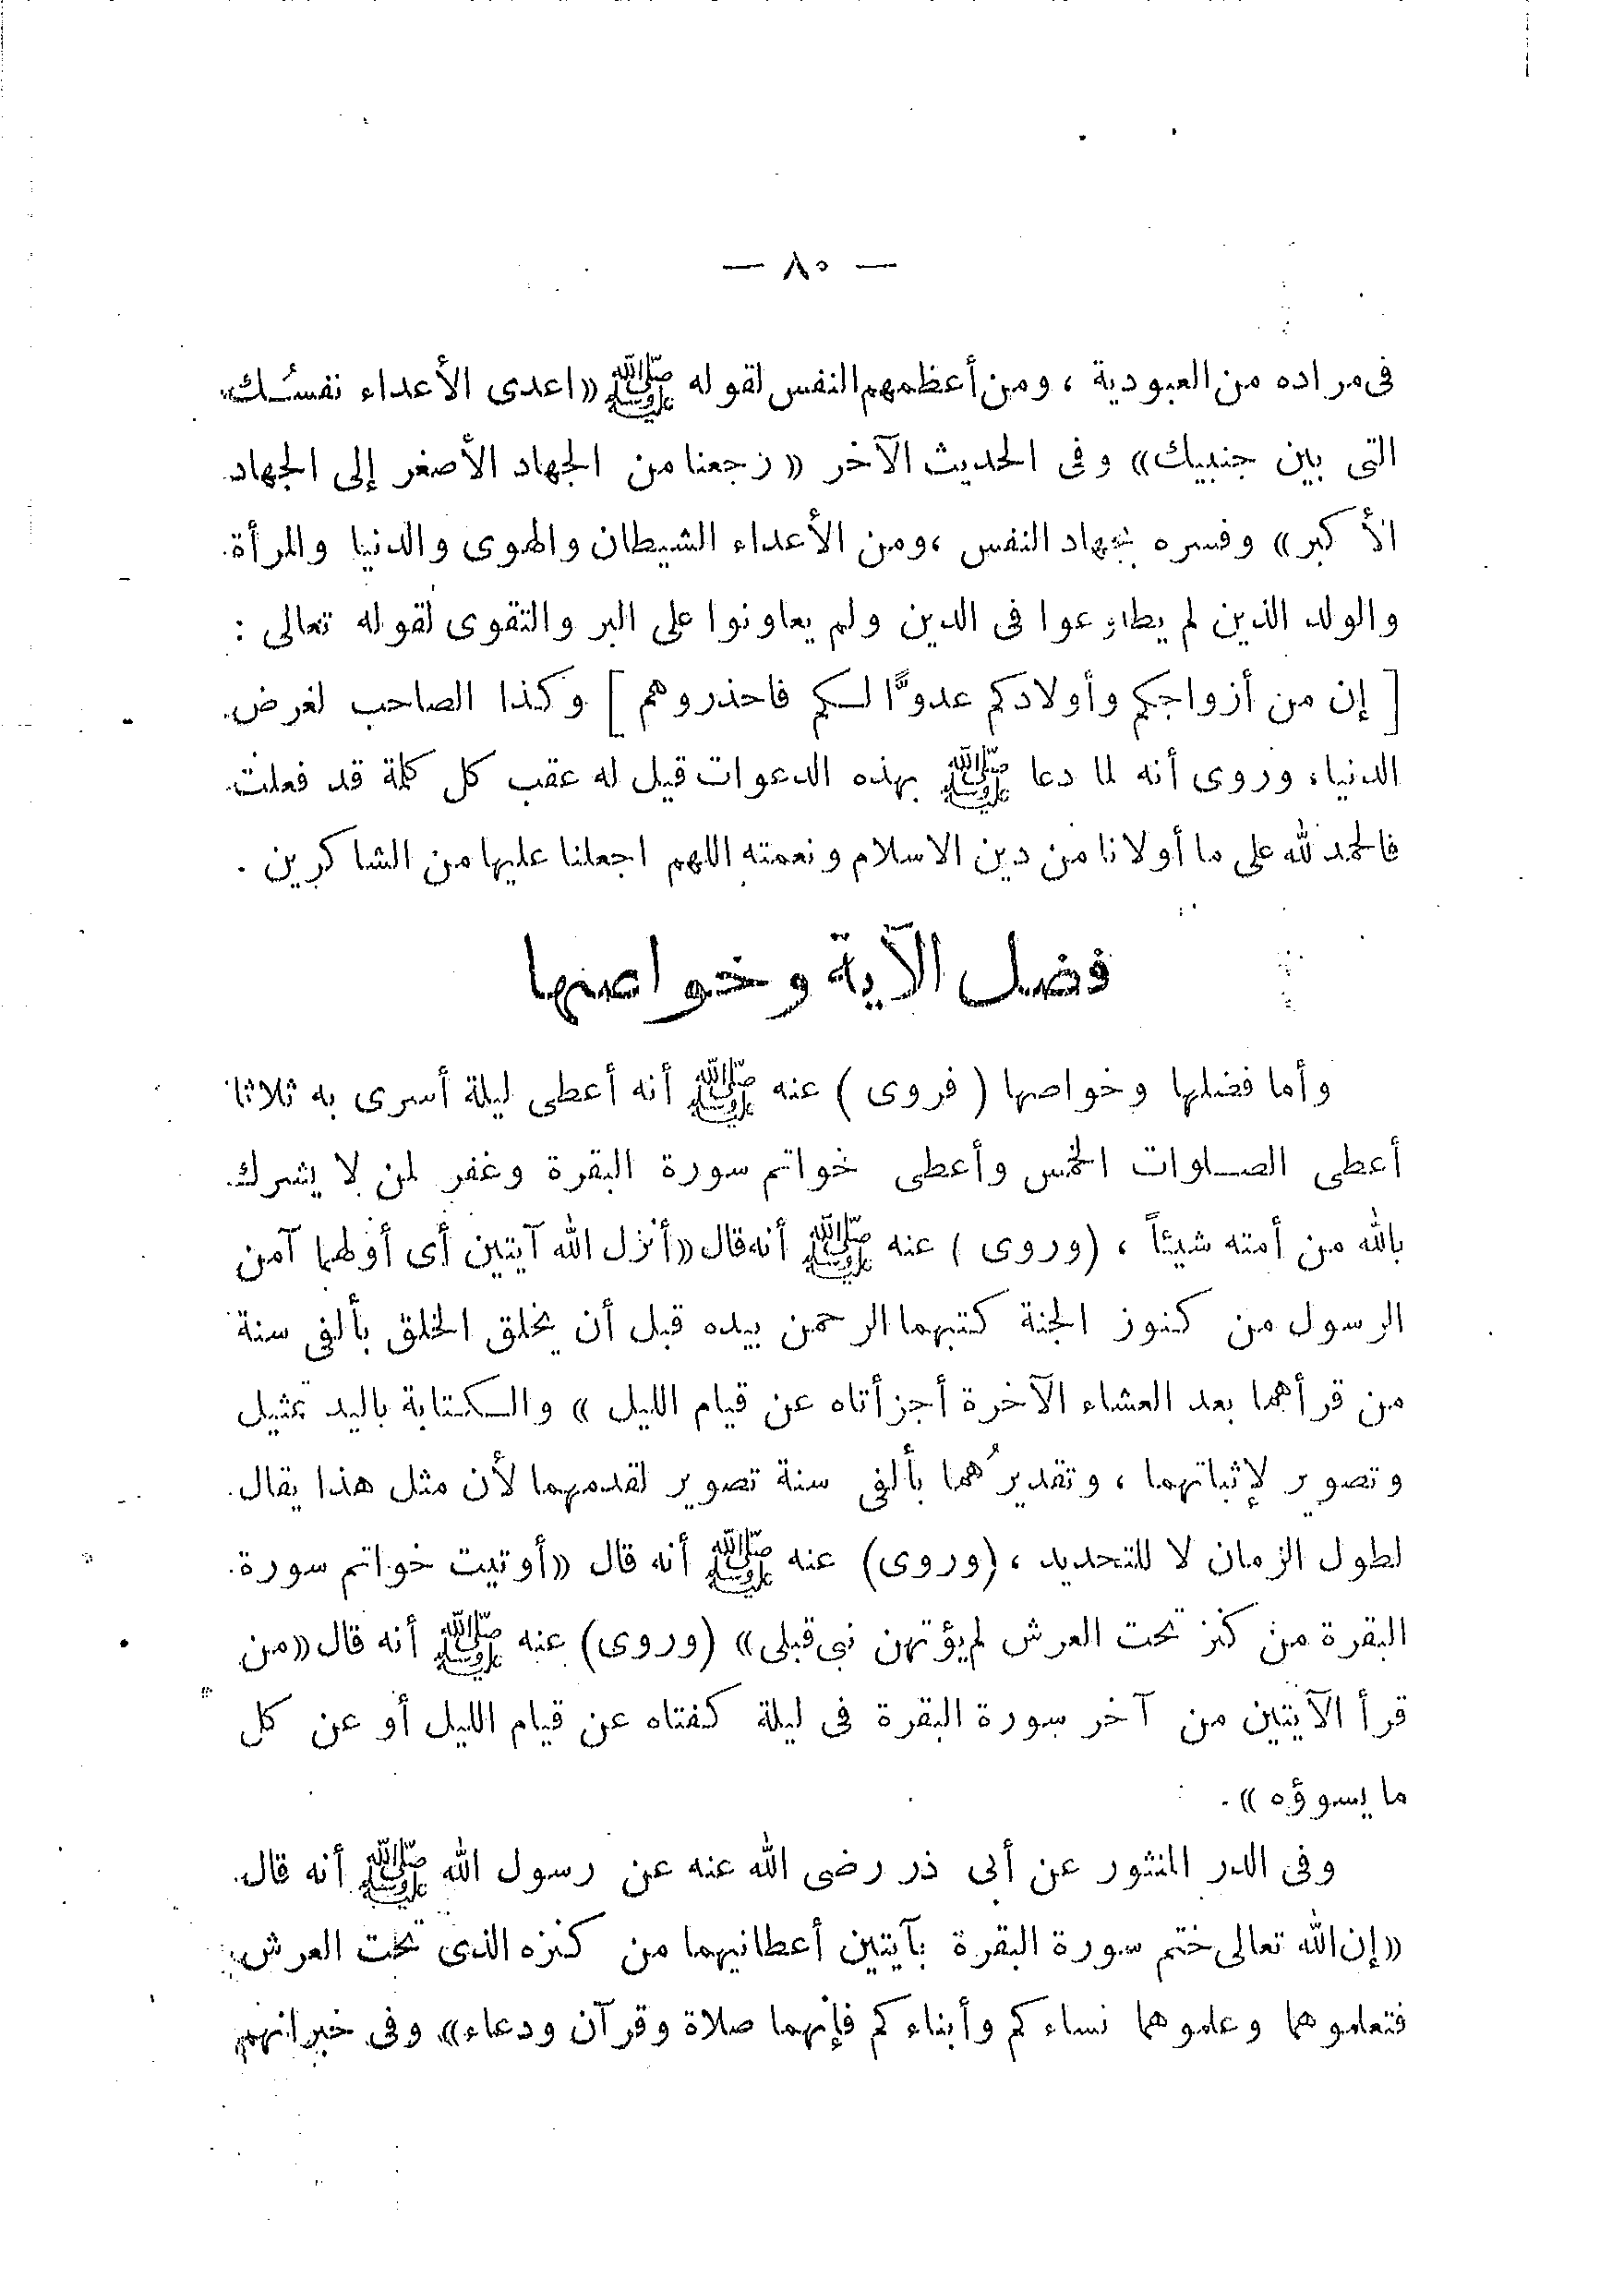 — ٨٠ —
فى مراده من العبودية ، ومن أعظمهم النفس لقوله ﷺ «اعدى الأعداء نفسُك
التى بين جنبيك» وفى الحديث الآخر «رجعنا من الجهاد الأصغر إلى الجهاد
الأكبر» وفسره بجهاد النفس ، ومن الأعداء الشيطان والهوى والدنيا والمرأة
والولد الذين لم يطاوعوا فى الدين ولم يعاونوا على البر والتقوى لقوله تعالى :
[ إن من أزواجكم وأولادكم عدوًّا لكم فاحذروهم ] وكذا الصاحب لغرض
الدنيا ، وروى أنه لما دعا ﷺ بهذه الدعوات قيل له عقب كل كلمة قد فعلت
فالحمد لله على ما أولانا من دين الاسلام ونعمته اللهم اجعلنا عليها من الشاكرين .
فضل الآية وخواصها
وأما فضلها وخواصها ( فروى ) عنه ﷺ أنه أعطى ليلة أسرى به ثلاثا
أعطى الصلوات الخمس وأعطى خواتم سورة البقرة وغفر لمن لا يشرك
بالله من أمته شيئاً ، (وروى ) عنه ﷺ أنه قال «أنزل الله آيتين أى أولهما آمن
الرسول من كنوز الجنة كتبهما الرحمن بيده قبل أن يخلق الخلق بألفى سنة
من قرأهما بعد العشاء الآخرة أجزأتاه عن قيام الليل » والكتابة باليد تمثيل
وتصوير لإثباتهما ، وتقديرُهما بألفى سنة تصوير لقدمهما لأن مثل هذا يقال
لطول الزمان لا للتحديد ، (وروى) عنه ﷺ أنه قال «أوتيت خواتم سورة
البقرة من كنز تحت العرش لم يؤتهن نبى قبلى» (وروى) عنه ﷺ أنه قال «من
قرأ الآيتين من آخر سورة البقرة فى ليلة كفتاه عن قيام الليل أو عن كل
ما يسوؤه » .
وفى الدر المنثور عن أبى ذر رضى الله عنه عن رسول الله ﷺ أنه قال
«إن الله تعالى ختم سورة البقرة بآيتين أعطانيهما من كنزه الذى تحت العرش
فتعلموهما وعلموهما نساءكم وأبناءكم فإنهما صلاة وقرآن ودعاء» وفى خبر انهم